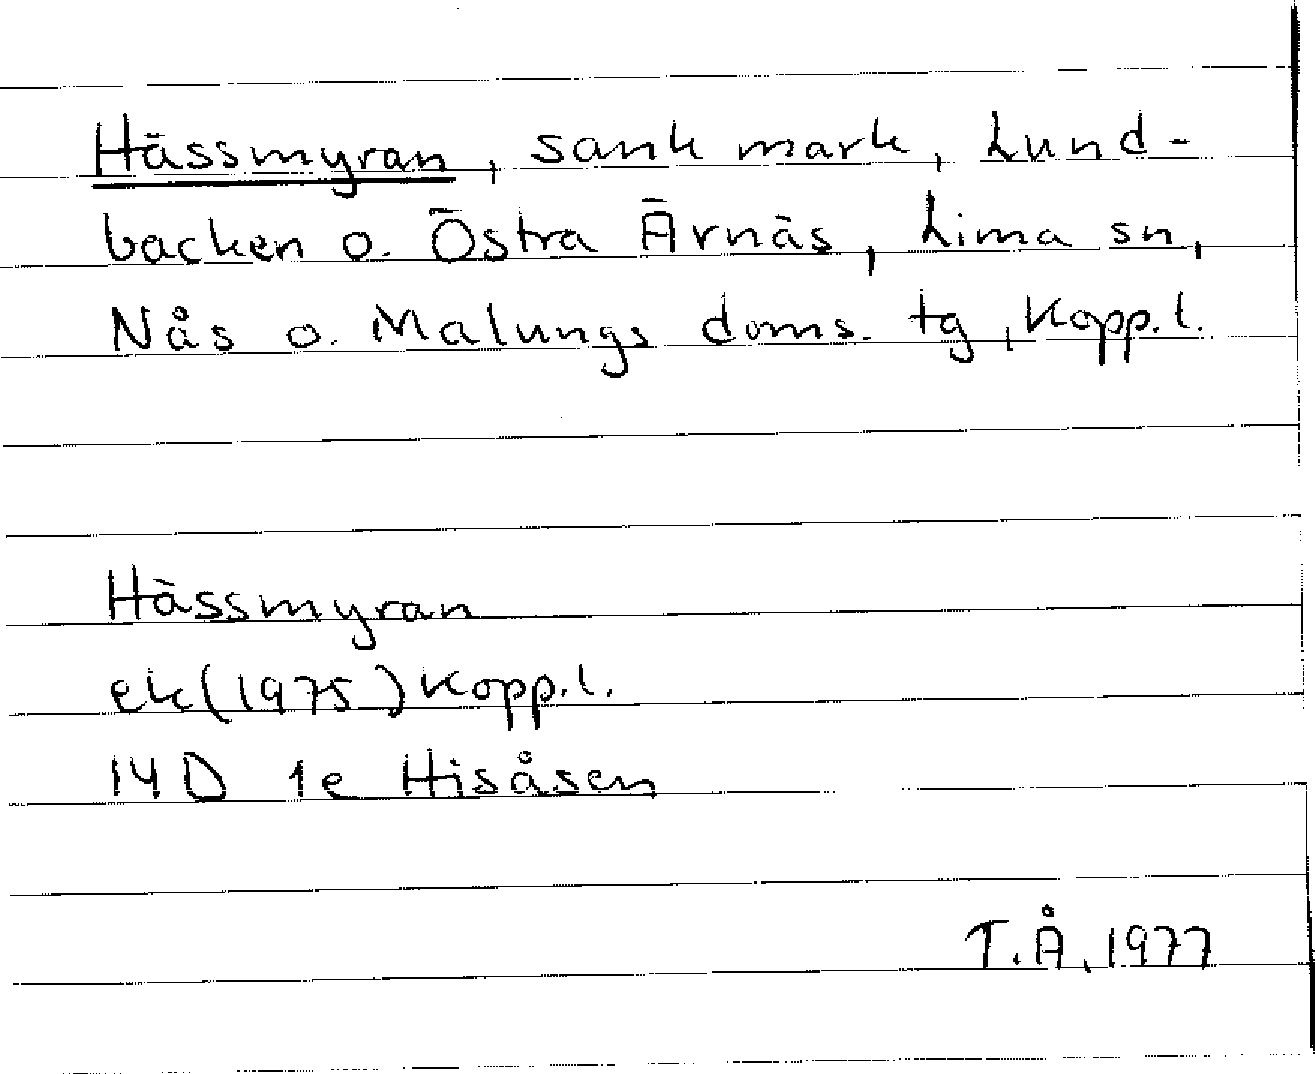 Hässmyran, sank mark, Lund-
backen o. Östra Ärnäs, Lima sn,
Nås o. Malungs doms. tg, Kopp.l.
Hässmyran
ek(1975) Kopp.l.
14D 1e Hisåsen
T.Å, 1977